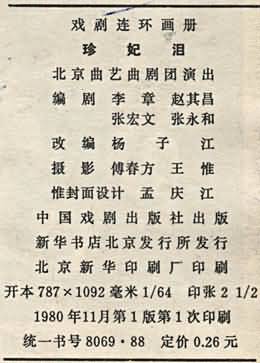 戏剧连环画册
珍妃泪
北京曲艺曲剧团演出
编剧 李章 赵其昌
张宏文 张永和
改编 杨子江
摄影 傅春方 王惟
惟封面设计 孟庆江
中国戏剧出版社出版
新华书店北京发行所发行
北京新华印刷厂印刷
开本 787×1092 毫米 1/64 印张 2 1/2
1980年11月第1版第1次印刷
统一书号 8069·88 定价 0.26 元